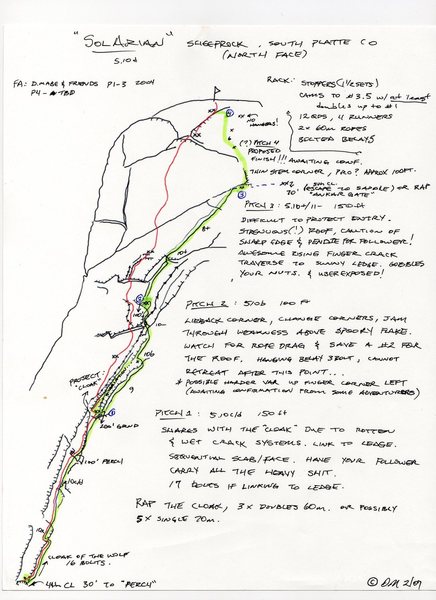 "SOLARIAN" SHEEPROCK, SOUTH PLATTE CO
5.10d (NORTH FACE)
FA: D. MABE & FRIENDS P1-3 2004
P4 - TBD
RACK: STOPPERS (1½ SETS)
CAMS TO #3.5 w/ at least
doubles up to #1
12 QDS, 4 RUNNERS
2x 60m ROPES
BOLTED BELAYS
XX
④
XX ←
NO
HANGERS!
(?) PITCH 4
PROPOSED
FINISH!!! AWAITING CONF.
THIN STEM CORNER, PRO? APPROX 100FT.
③
(ESCAPE TO SADDLE) OR RAP
"ANKUR GATE"
PITCH 3: 5.10+/11- 150 FT
DIFFICULT TO PROTECT ENTRY.
STRENUOUS(!) ROOF, CAUTION OF
SHARP EDGE & PENDIE FOR FOLLOWER!
AWESOME RISING FINGER CRACK
TRAVERSE TO SUNNY LEDGE. GOBBLES
YOUR NUTS. & UBEREXPOSED!
8+
XX
10+
②
10-
PITCH 2: 5.10b 100 FT
LIEBACK CORNER, CHANGE CORNERS, JAM
THROUGH WEAKNESS ABOVE SPOOKY FLAKE.
WATCH FOR ROPE DRAG & SAVE A #2 FOR
THE ROOF. HANGING BELAY 3 BOLT, CANNOT
RETREAT AFTER THIS POINT...
* POSSIBLE HARDER VAR UP FINGER CORNER LEFT
(AWAITING CONFIRMATION FROM SOME ADVENTURERS)
XX
10b
PROJECT:
"CLOAK"
9
①
200' GRND
PITCH 1: 5.10c/d 150 FT
SHARES WITH THE "CLOAK" DUE TO ROTTEN
& WET CRACK SYSTEMS. LINK TO LEDGE.
SEQUENTIAL SLAB/FACE. HAVE YOUR FOLLOWER
CARRY ALL THE HEAVY SHIT.
17 BOLTS IF LINKING TO LEDGE.
100' PERCH
RAP THE CLOAK, 3x DOUBLES 60m. OR POSSIBLY
5x SINGLE 70m.
CLOAK OF THE WOLF
16 BOLTS.
4th CL 30' TO "PERCH"
© DM 2/09